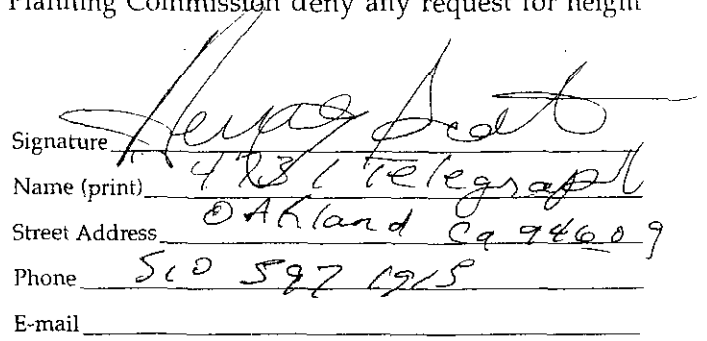 Planning Commission deny any request for height
Signature Scott
Name (print) 4731 Telegraph
Street Address Oakland Ca 94609
Phone 510 597 1915
E-mail